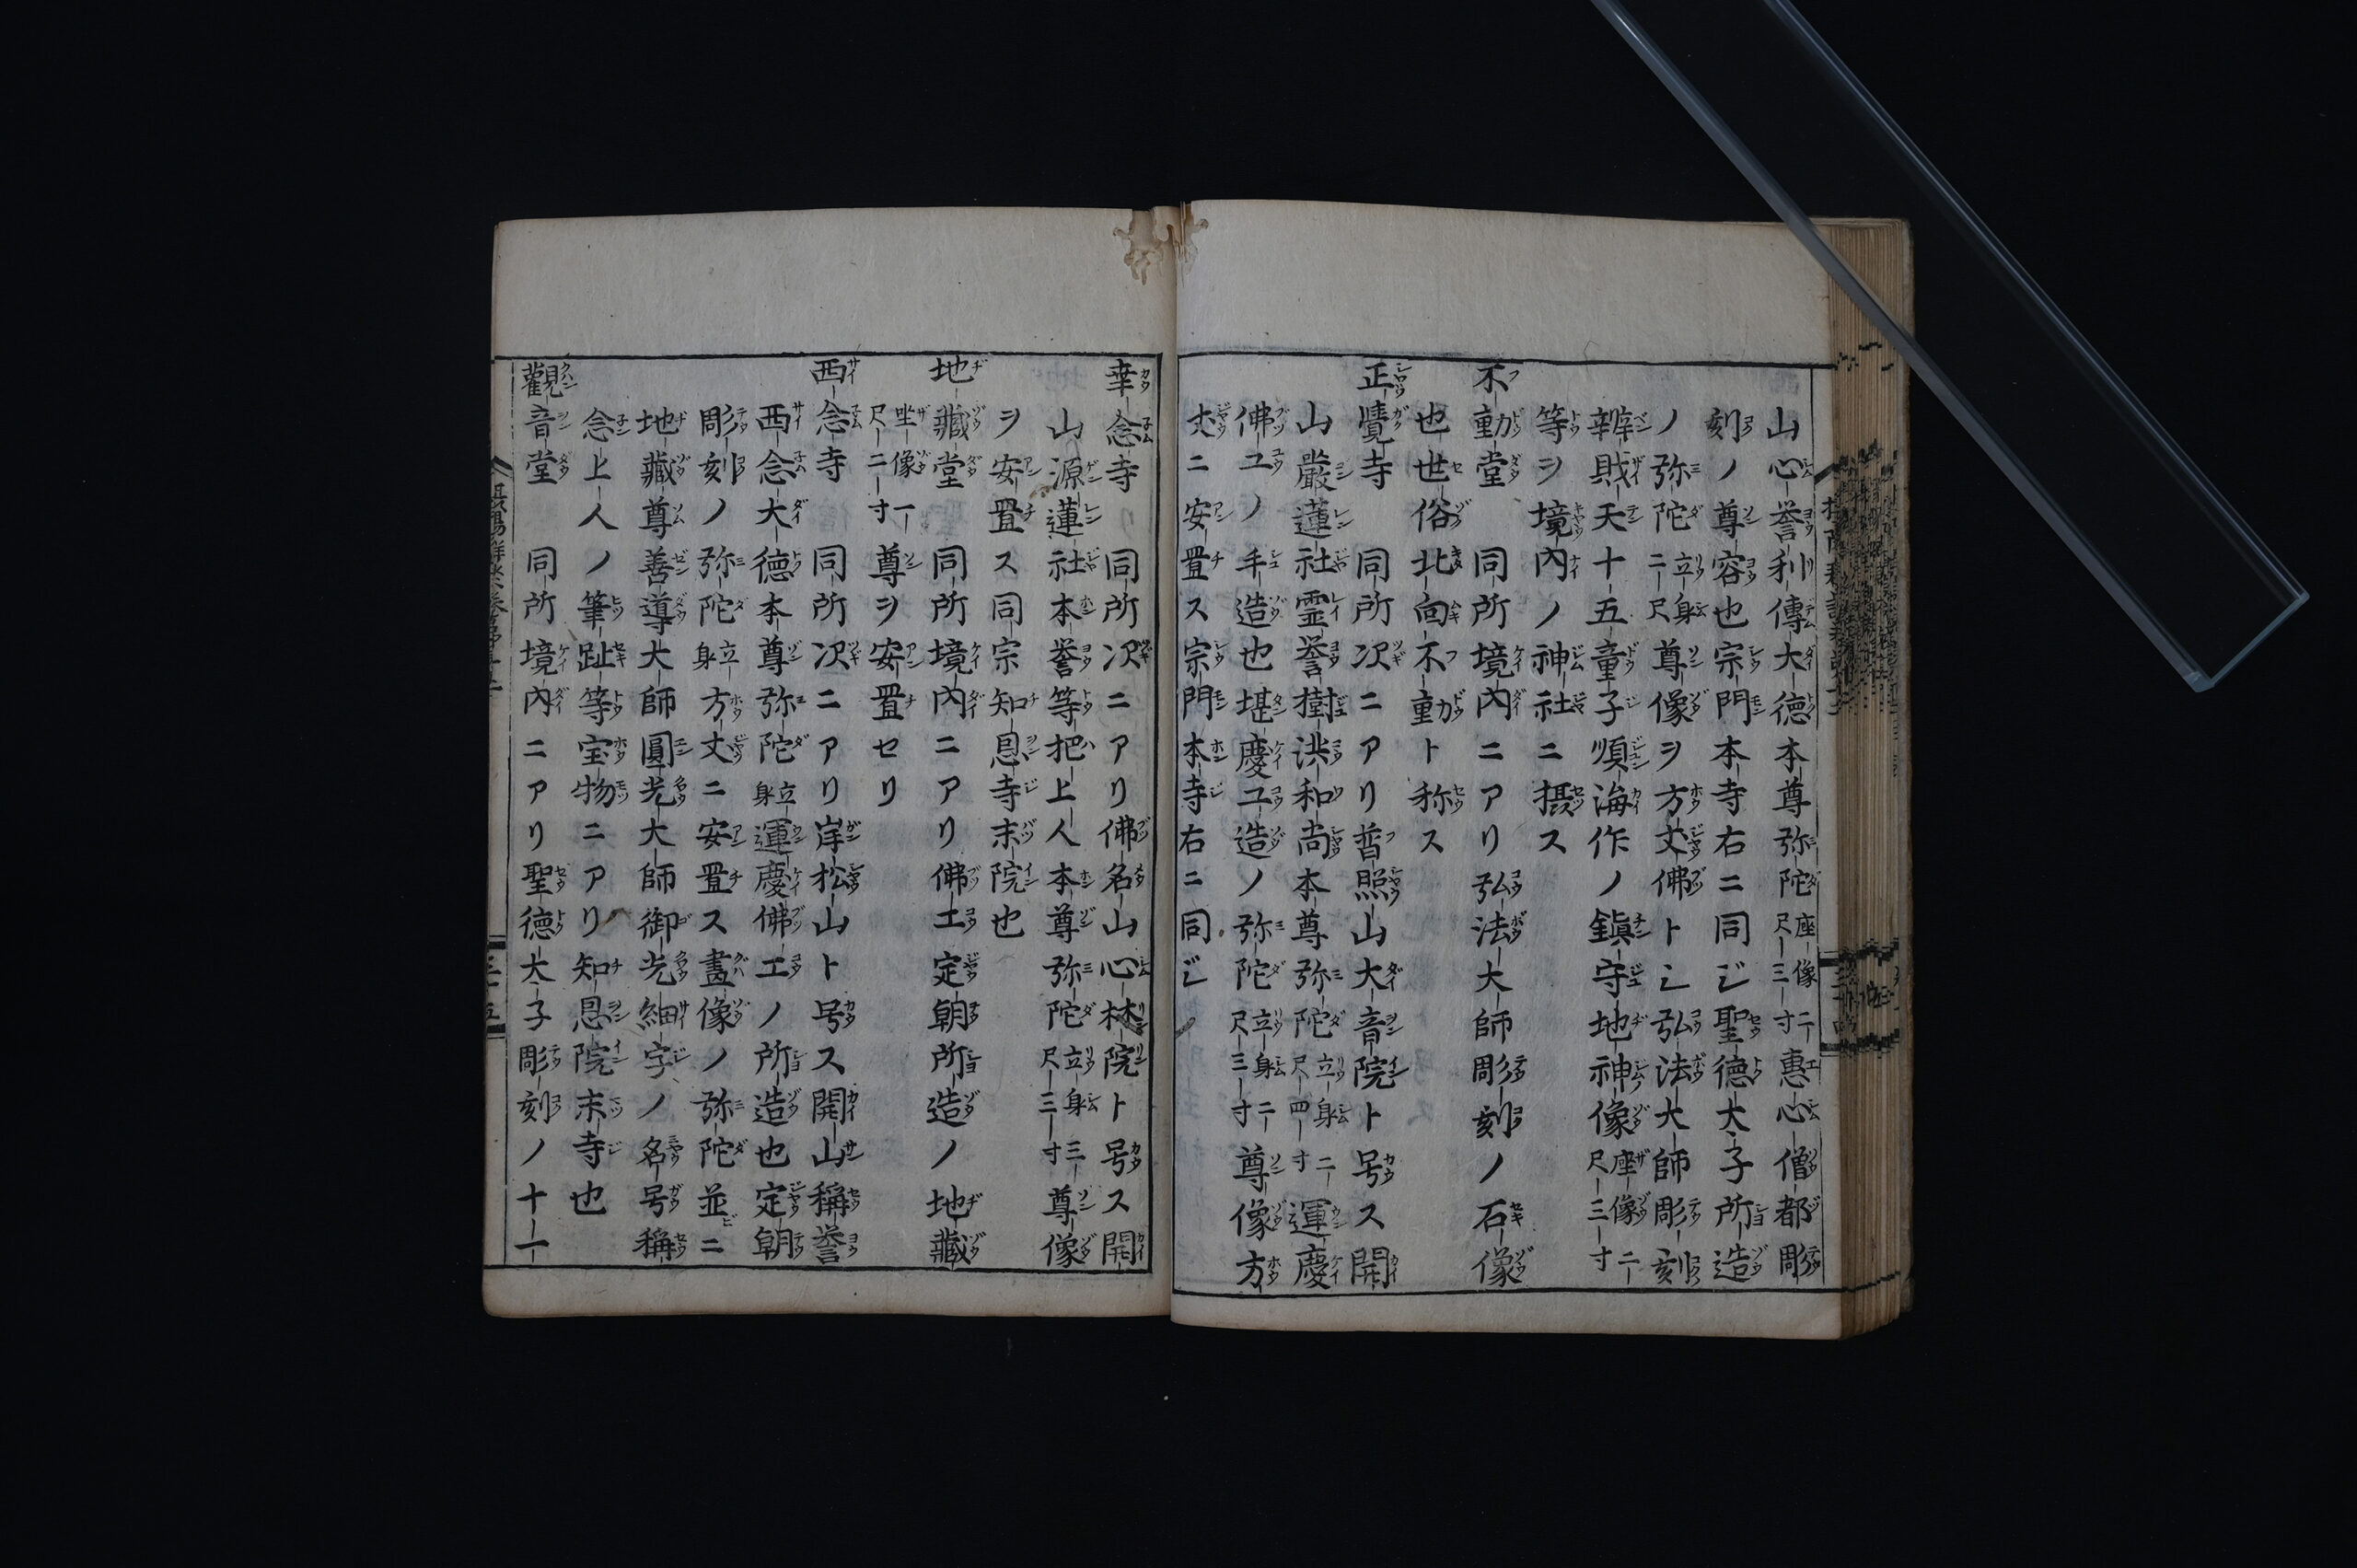 山心誉利傳大德本尊弥陀座像二尺三寸惠心僧都彫
刻ノ尊容也宗門本寺右ニ同ジ聖德太子所造
ノ弥陀立身二尺尊像ヲ方丈佛トシ弘法大師彫刻
辨財天十五童子順海作ノ鎮守地神像座像二尺三寸
等ヲ境內ノ神社ニ摂ス
不動堂 同所境內ニアリ弘法大師彫刻ノ石像
也世俗北向不動ト称ス
正覺寺 同所次ニアリ普照山大音院ト号ス開
山嚴蓮社霊誉樹洪和尚本尊弥陀立身二尺四寸運慶
佛工ノ手造也堪慶工造ノ弥陀立身二尺三寸尊像方
丈ニ安置ス宗門本寺右ニ同ジ
幸念寺 同所次ニアリ佛名山心林院ト号ス開
山源蓮社本誉等把上人本尊弥陀立身三尺三寸尊像
ヲ安置ス同宗知恩寺末院也
地藏堂 同所境內ニアリ佛工定朝所造ノ地藏
坐像一尺二寸尊ヲ安置セリ
西念寺 同所次ニアリ岸松山ト号ス開山稱誉
西念大德本尊弥陀立身運慶佛工ノ所造也定朝
彫刻ノ弥陀立身方丈ニ安置ス畫像ノ弥陀並ニ
地藏尊善導大師圓光大師御光細字ノ名号稱
念上人ノ筆跡等宝物ニアリ知恩院末寺也
觀音堂 同所境內ニアリ聖德太子彫刻ノ十一